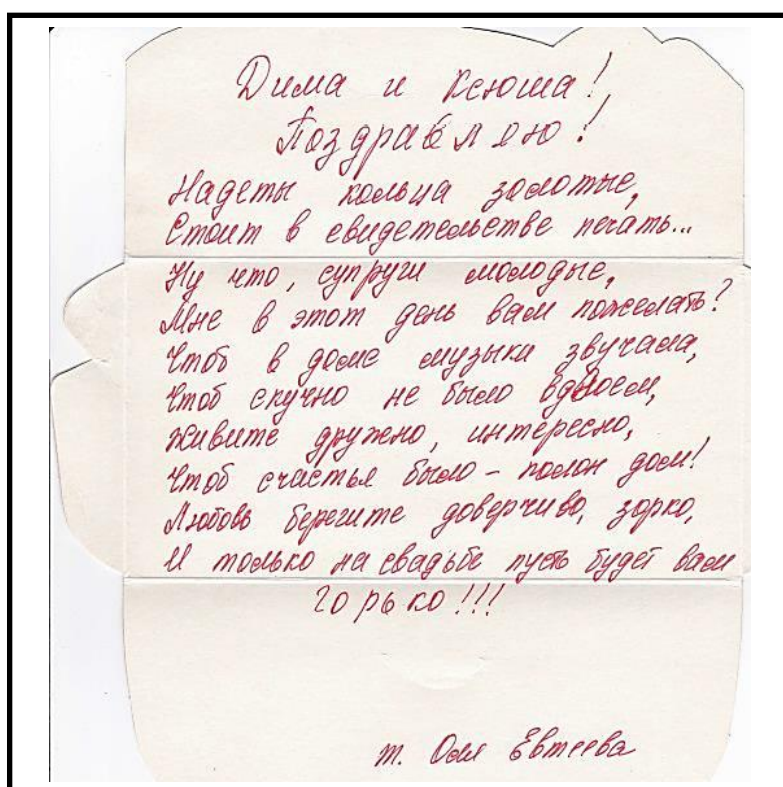 Дима и Ксюша!
Поздравляю!
Надеты кольца золотые,
Стоит в свидетельстве печать...
Ну что, супруги молодые,
Мне в этот день вам пожелать?
Чтоб в доме музыка звучала,
Чтоб скучно не было вдвоем,
Живите дружно, интересно,
Чтоб счастья было - полон дом!
Любовь берегите доверчиво, зорко,
И только на свадьбе пусть будет вам
Горько!!!
т. Оля Евтеева